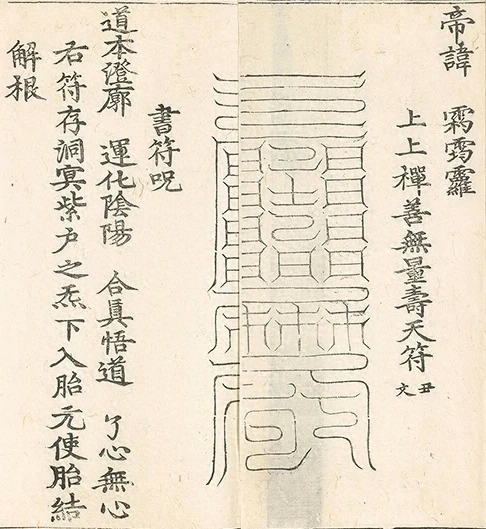 帝諱
上上禪善無量壽天符 丑文
書符呪
道本澄廓 運化陰陽 合眞悟道 了心無心
右符存洞冥紫户之炁下入胎元使胎結
解根